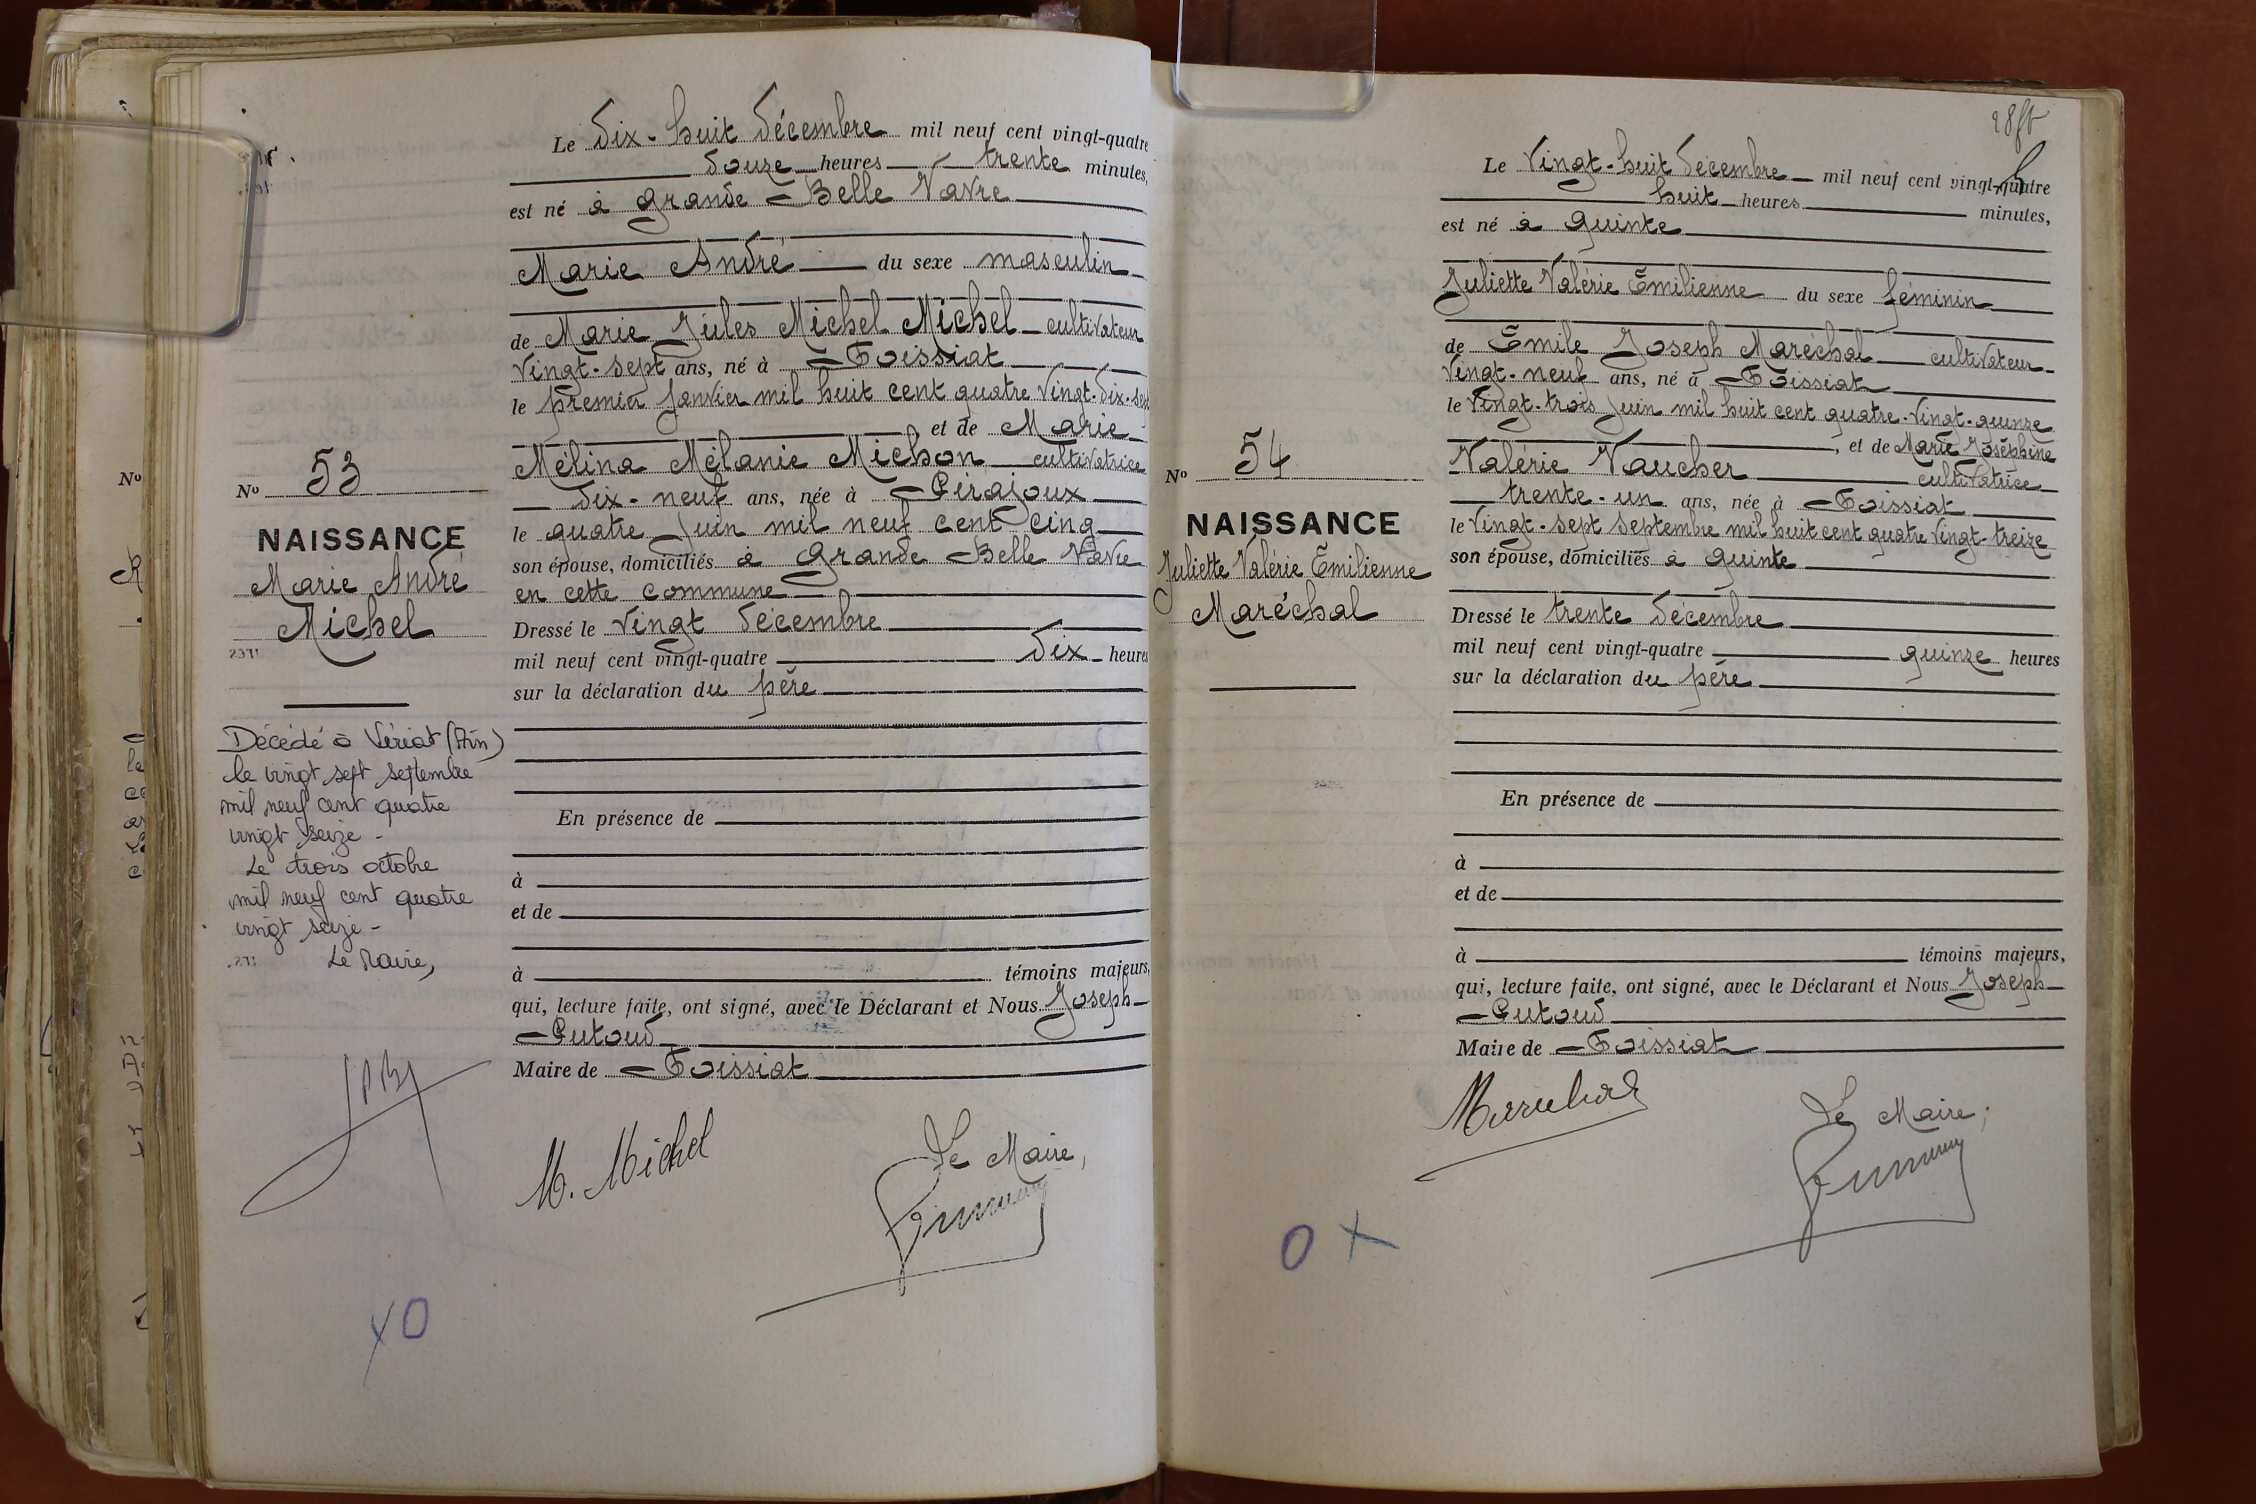 Le Dix-huit Décembre mil neuf cent vingt-quatre
Douze heures trente minutes,
est né à Grande Belle Vavre
Marie André du sexe masculin
de Marie Jules Michel Michel cultivateur
Vingt-sept ans, né à Foissiat
le premier Janvier mil huit cent quatre Vingt-Dix-sept
et de Marie
Mélina Mélanie Michon cultivatrice
Dix-neuf ans, née à Perajoux
le quatre Juin mil neuf cent cinq
son épouse, domiciliés à Grande Belle Vavre
en cette commune
Dressé le Vingt Décembre
mil neuf cent vingt-quatre Dix heures
sur la déclaration du père
En présence de
à
et de
à témoins majeurs,
qui, lecture faite, ont signé, avec le Déclarant et Nous Joseph
Putoud
Maire de Foissiat
M. Michel
Le Maire,
No
No 53
NAISSANCE
Marie André
Michel
Décédé à Viriat (Ain)
le vingt sept septembre
mil neuf cent quatre
vingt seize -
Le trois octobre
mil neuf cent quatre
vingt seize -
Le Maire,
XO
Le Vingt-huit Décembre mil neuf cent vingt-quatre
huit heures minutes,
est né à Quinte
Juliette Valérie Emilienne du sexe féminin
de Emile Joseph Maréchal cultivateur
Vingt-neuf ans, né à Foissiat
le Vingt-trois Juin mil huit cent quatre-Vingt-quinze
, et de Marie Joséphine
Valérie Vaucher cultivatrice
trente-un ans, née à Foissiat
le Vingt-sept Septembre mil huit cent quatre Vingt-treize
son épouse, domiciliés à Quinte
Dressé le trente Décembre
mil neuf cent vingt-quatre quinze heures
sur la déclaration du père
En présence de
à
et de
à témoins majeurs,
qui, lecture faite, ont signé, avec le Déclarant et Nous Joseph
Putoud
Maire de Foissiat
Marechal
Le Maire,
No 54
NAISSANCE
Juliette Valérie Emilienne
Maréchal
O X